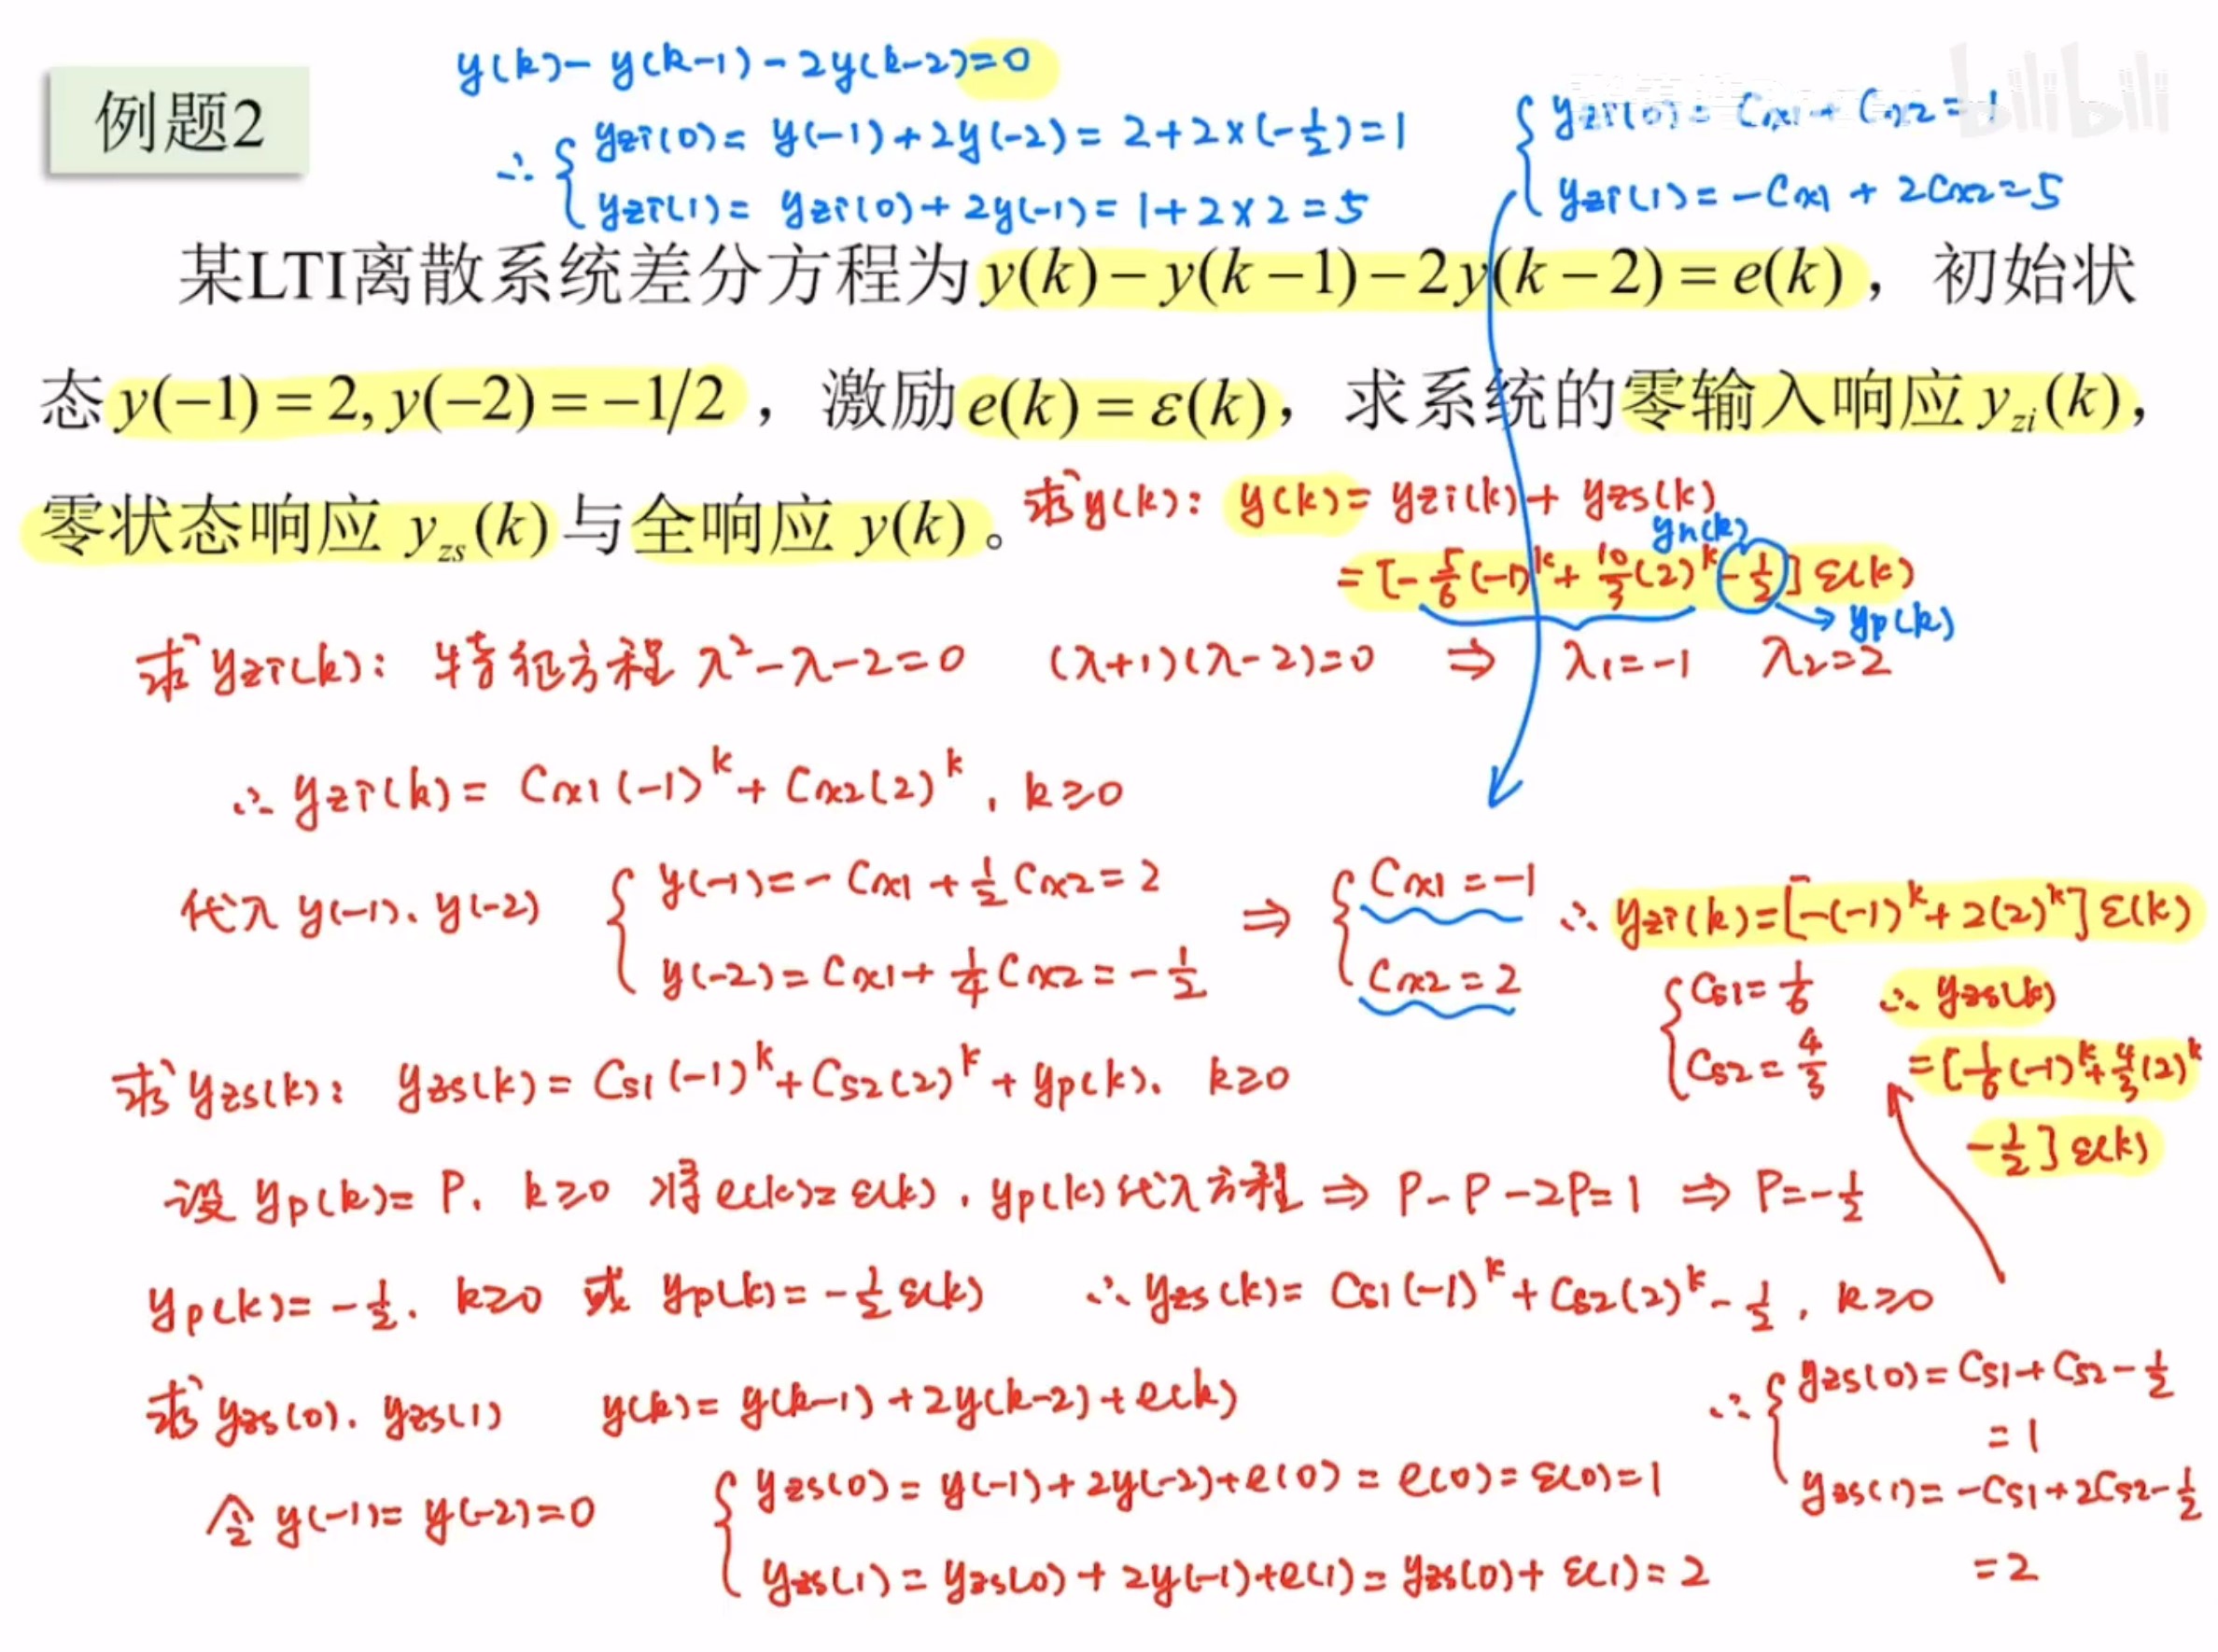 例题2
y(k)-y(k-1)-2y(k-2)=0
∴ { yzi(0)= y(-1)+2y(-2)= 2+2×(-1/2)=1
yzi(1)= yzi(0)+2y(-1)= 1+2×2=5
bilibili
Cx1+Cx2=1
yzi(1)=-Cx1+2Cx2=5
某LTI离散系统差分方程为y(k)-y(k-1)-2y(k-2)=e(k)，初始状
态y(-1)=2,y(-2)=-1/2，激励e(k)=ε(k)，求系统的零输入响应yzi(k)，
零状态响应 yzs(k)与全响应 y(k)。
求y(k): y(k)= yzi(k)+ yzs(k)
yn(k)
=[-5/6(-1)^k+10/3(2)^k-1/2]ε(k)
yp(k)
求yzi(k): 特征方程 λ²-λ-2=0 (λ+1)(λ-2)=0 ⇒ λ1=-1 λ2=2
∴ yzi(k)= Cx1(-1)^k+Cx2(2)^k, k≥0
代入 y(-1)、y(-2) { y(-1)=-Cx1+1/2Cx2=2
y(-2)=Cx1+1/4Cx2=-1/2
⇒ { Cx1=-1
Cx2=2
∴ yzi(k)=[-(-1)^k+2(2)^k]ε(k)
{ Cs1=1/6
Cs2=4/3
∴ yzs(k)
=[1/6(-1)^k+4/3(2)^k
-1/2]ε(k)
求yzs(k): yzs(k)= Cs1(-1)^k+Cs2(2)^k+yp(k)、 k≥0
设 yp(k)= P、 k≥0 将e(k)=ε(k), yp(k)代入方程 ⇒ P-P-2P=1 ⇒ P=-1/2
yp(k)=-1/2、 k≥0 或 yp(k)=-1/2ε(k) ∴ yzs(k)= Cs1(-1)^k+Cs2(2)^k-1/2, k≥0
求yzs(0)、yzs(1) y(k)= y(k-1)+2y(k-2)+e(k)
令 y(-1)= y(-2)=0 { yzs(0)= y(-1)+2y(-2)+e(0)= e(0)=ε(0)=1
yzs(1)= yzs(0)+2y(-1)+e(1)= yzs(0)+ε(1)=2
∴ { yzs(0)=Cs1+Cs2-1/2
=1
yzs(1)=-Cs1+2Cs2-1/2
=2